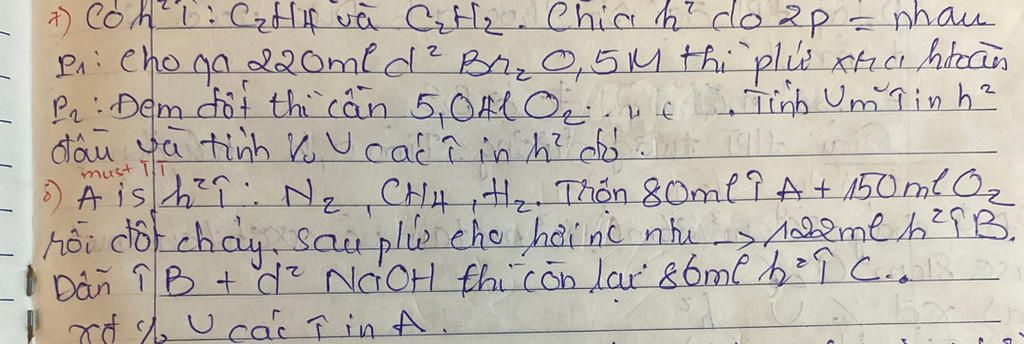 7) Có h² ↑: C₂H4 và C₂H₂. Chia h² do 2p = nhau
P₁: Cho qa 220ml d² Br₂ 0,5M thì pứ xra htoàn
P₂: Đem đốt thì cần 5,04l O₂. Tính Um ↑ in h²
đầu và tính % V các ↑ in h² đó.
must ↑↑
8) A is h² ↑: N₂, CH4, H₂. Trộn 80ml ↑ A + 150ml O₂
rồi đốt cháy. Sau pứ cho hơi nc nhu → 122ml h² ↑ B.
Dẫn ↑ B + d² NaOH thì còn lại 86ml h² ↑ C..
xđ % V các ↑ in A.